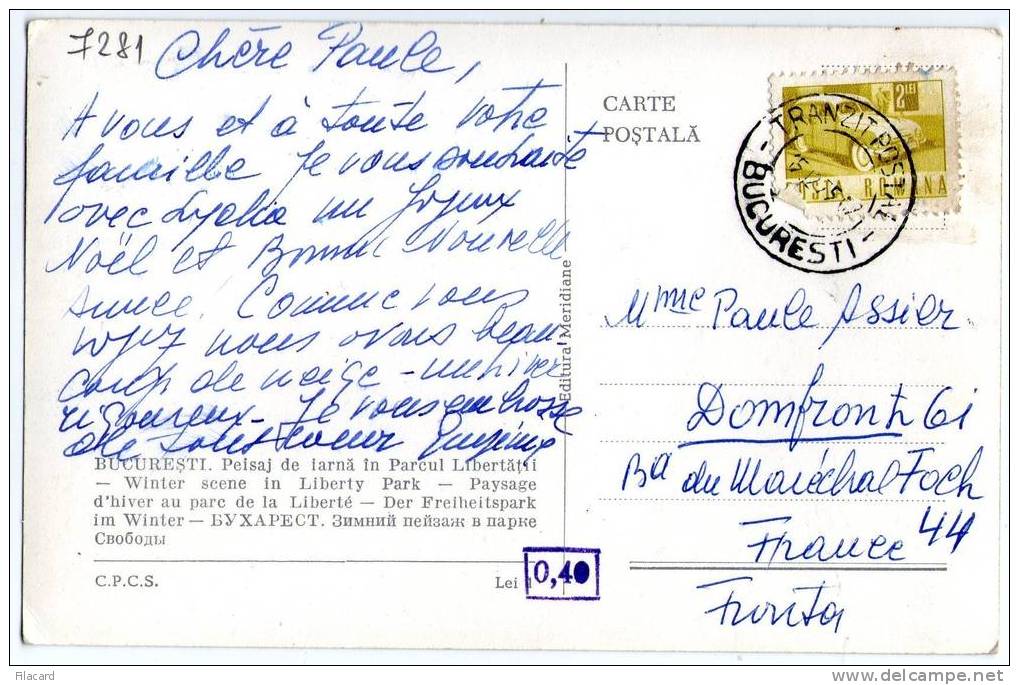 7281
Chère Paule,
A vous et à toute votre
famille Je vous souhaite
avec Lydia un Joyeux
Noël et Bonne Nouvelle
Année! Comme vous
voyez nous avons beau-
coup de neige - un hiver
rigoureux - Je vous embrasse
de tout coeur
BUCUREȘTI. Peisaj de iarnă în Parcul Libertății
— Winter scene in Liberty Park — Paysage
d'hiver au parc de la Liberté — Der Freiheitspark
im Winter — БУХАРЕСТ. Зимний пейзаж в парке
Свободы
C.P.C.S.
Lei 1
0,40
Editura Meridiane
CARTE
POȘTALĂ
2 LEI
POSTA ROMINA
TRANZIT POSTAL
- BUCURESTI -
Mme Paule Assier
Domfront 61
Bd du Maréchal Foch
44
France
Franța
Filacard
www.delcampe.net